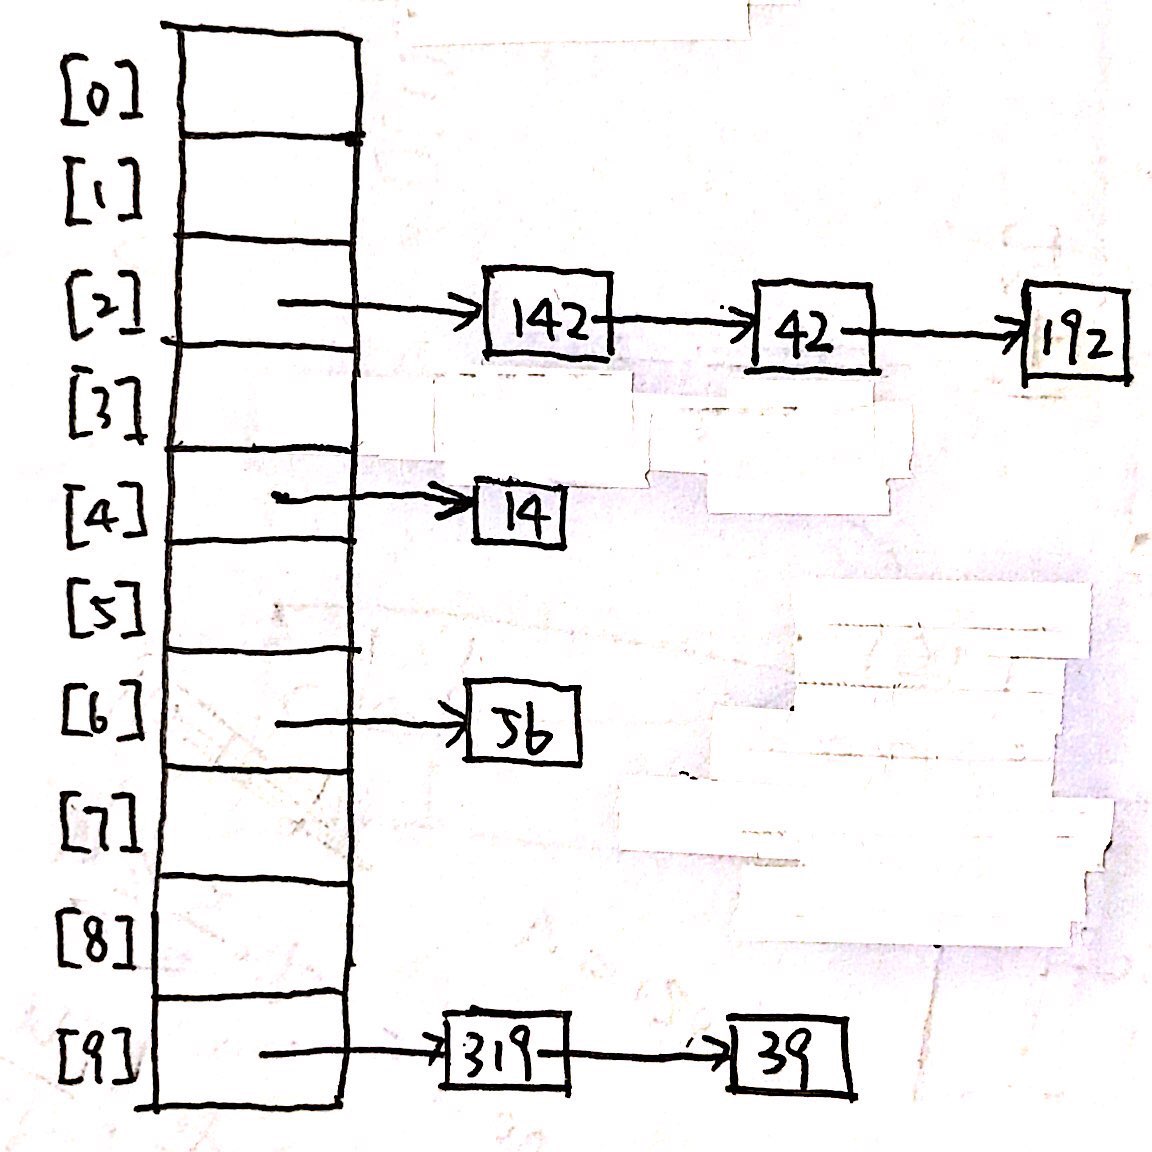 [0]
[1]
[2] 142 42 192
[3]
[4] 14
[5]
[6] 56
[7]
[8]
[9] 319 39